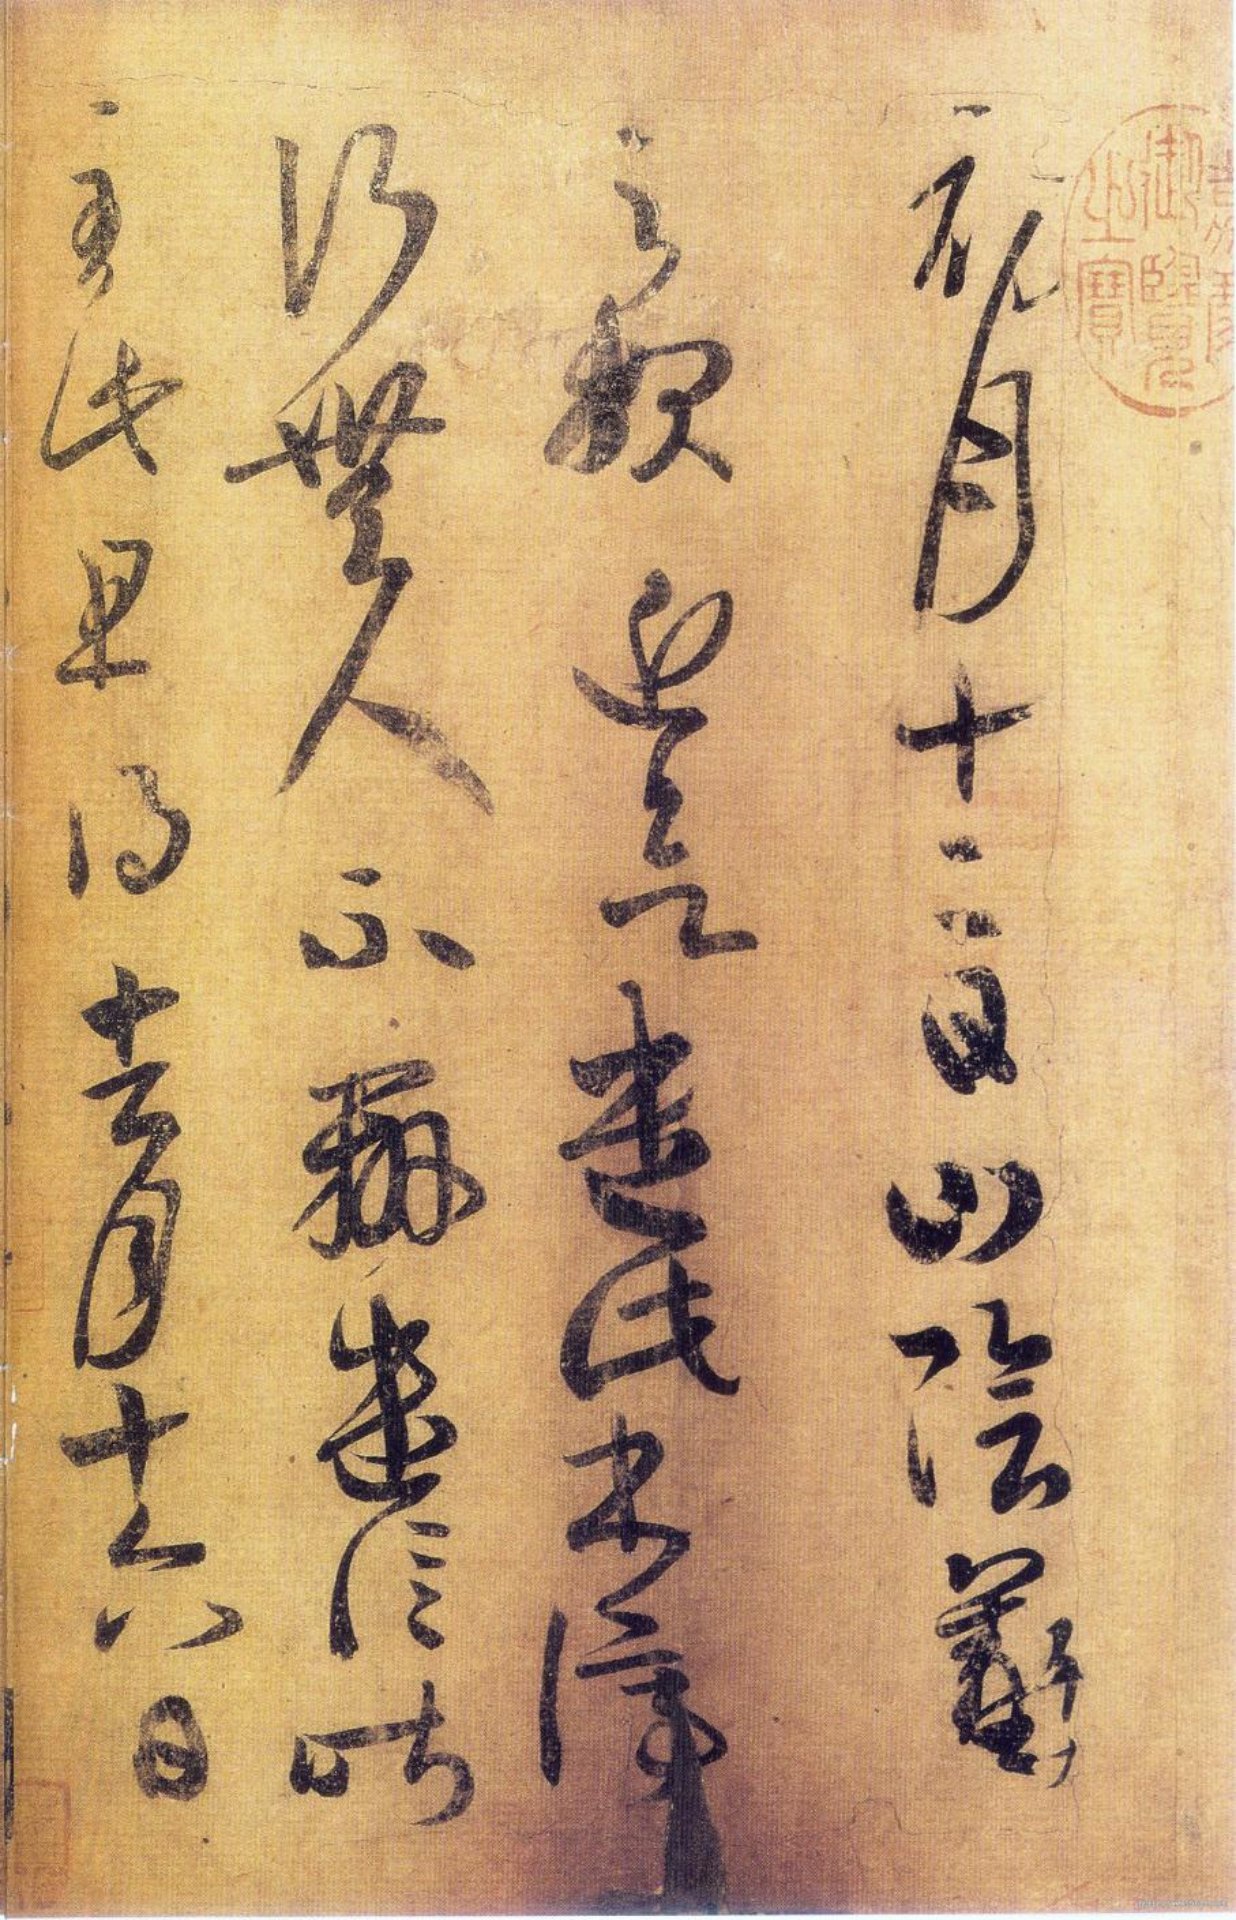 初月十二日山陰羲
之報近欲遣此書停
行無人不辦遣信昨
至此且得去月十六日
御覽之寶